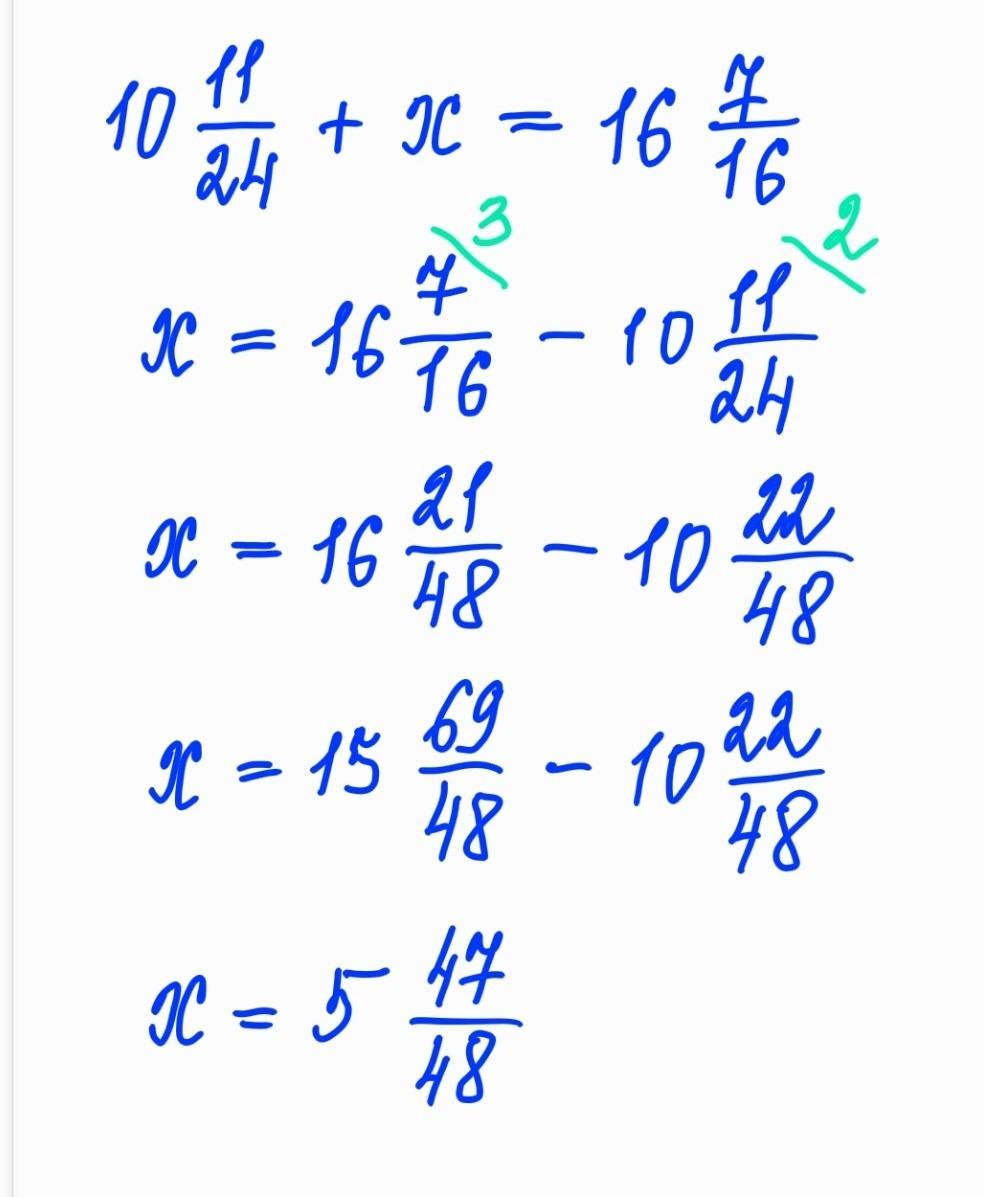 10 11/24 + x = 16 7/16
x = 16 7/16 \3 − 10 11/24 \2
x = 16 21/48 − 10 22/48
x = 15 69/48 − 10 22/48
x = 5 47/48